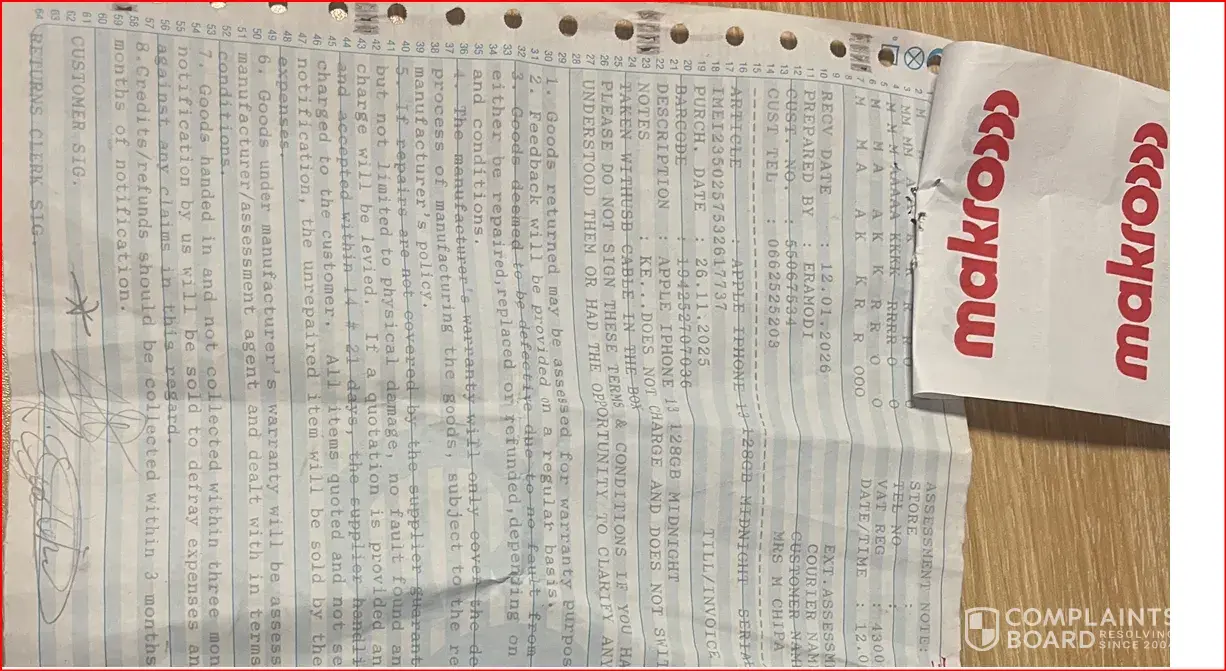 makro
makro
ASSESSMENT NOTE:
STORE :
TEL NO :
VAT REG : 4300
DATE/TIME : 12.0
EXT.ASSESSM
RECV DATE : 12.01.2026
COURIER NAM
PREPARED BY : ERAMODI
CUSTOMER NAM
CUST. NO. : 55067534
MRS M CHIPA
CUST TEL : 0662525203
ARTICLE : APPLE IPHONE 13 128GB MIDNIGHT SERIA
IMEI2350257532617737
TILL/INVOICE
PURCH. DATE : 26.11.2025
BARCODE : 194252707036
DESCRIPTION : APPLE IPHONE 13 128GB MIDNIGHT
NOTES : KE... DOES NOT CHARGE AND DOES NOT SWIT
TAKEN WITHUSB CABLE IN THE BOX
PLEASE DO NOT SIGN THESE TERMS & CONDITIONS IF YOU HA
UNDERSTOOD THEM OR HAD THE OPPORTUNITY TO CLARIFY ANY
1. Goods returned may be assessed for warranty purpos
2. Feedback will be provided on a regular basis.
3. Goods deemed to be defective due to no fault from
either be repaired,replaced or refunded,depending on
and conditions.
4. The manufacturer's warranty will only cover the de
process of manufacturing the goods, subject to the re
manufacturer's policy.
5. If repairs are not covered by the supplier guarant
but not limited to physical damage, no fault found an
charge will be levied. If a quotation is provided an
and accepted within 14 # 21 days, the supplier handli
charged to the customer. All items quoted and not se
notification, the unrepaired item will be sold by the
expenses.
6. Goods under manufacturer's warranty will be assess
manufacturer/assessment agent and dealt with in terms
conditions.
7. Goods handed in and not collected within three mon
notification by us will be sold to defray expenses an
against any claims in this regard.
8.Credits/refunds should be collected within 3 months
months of notification.
CUSTOMER SIG.
RETURNS CLERK SIG.
COMPLAINTS
BOARD RESOLVING
SINCE 2004